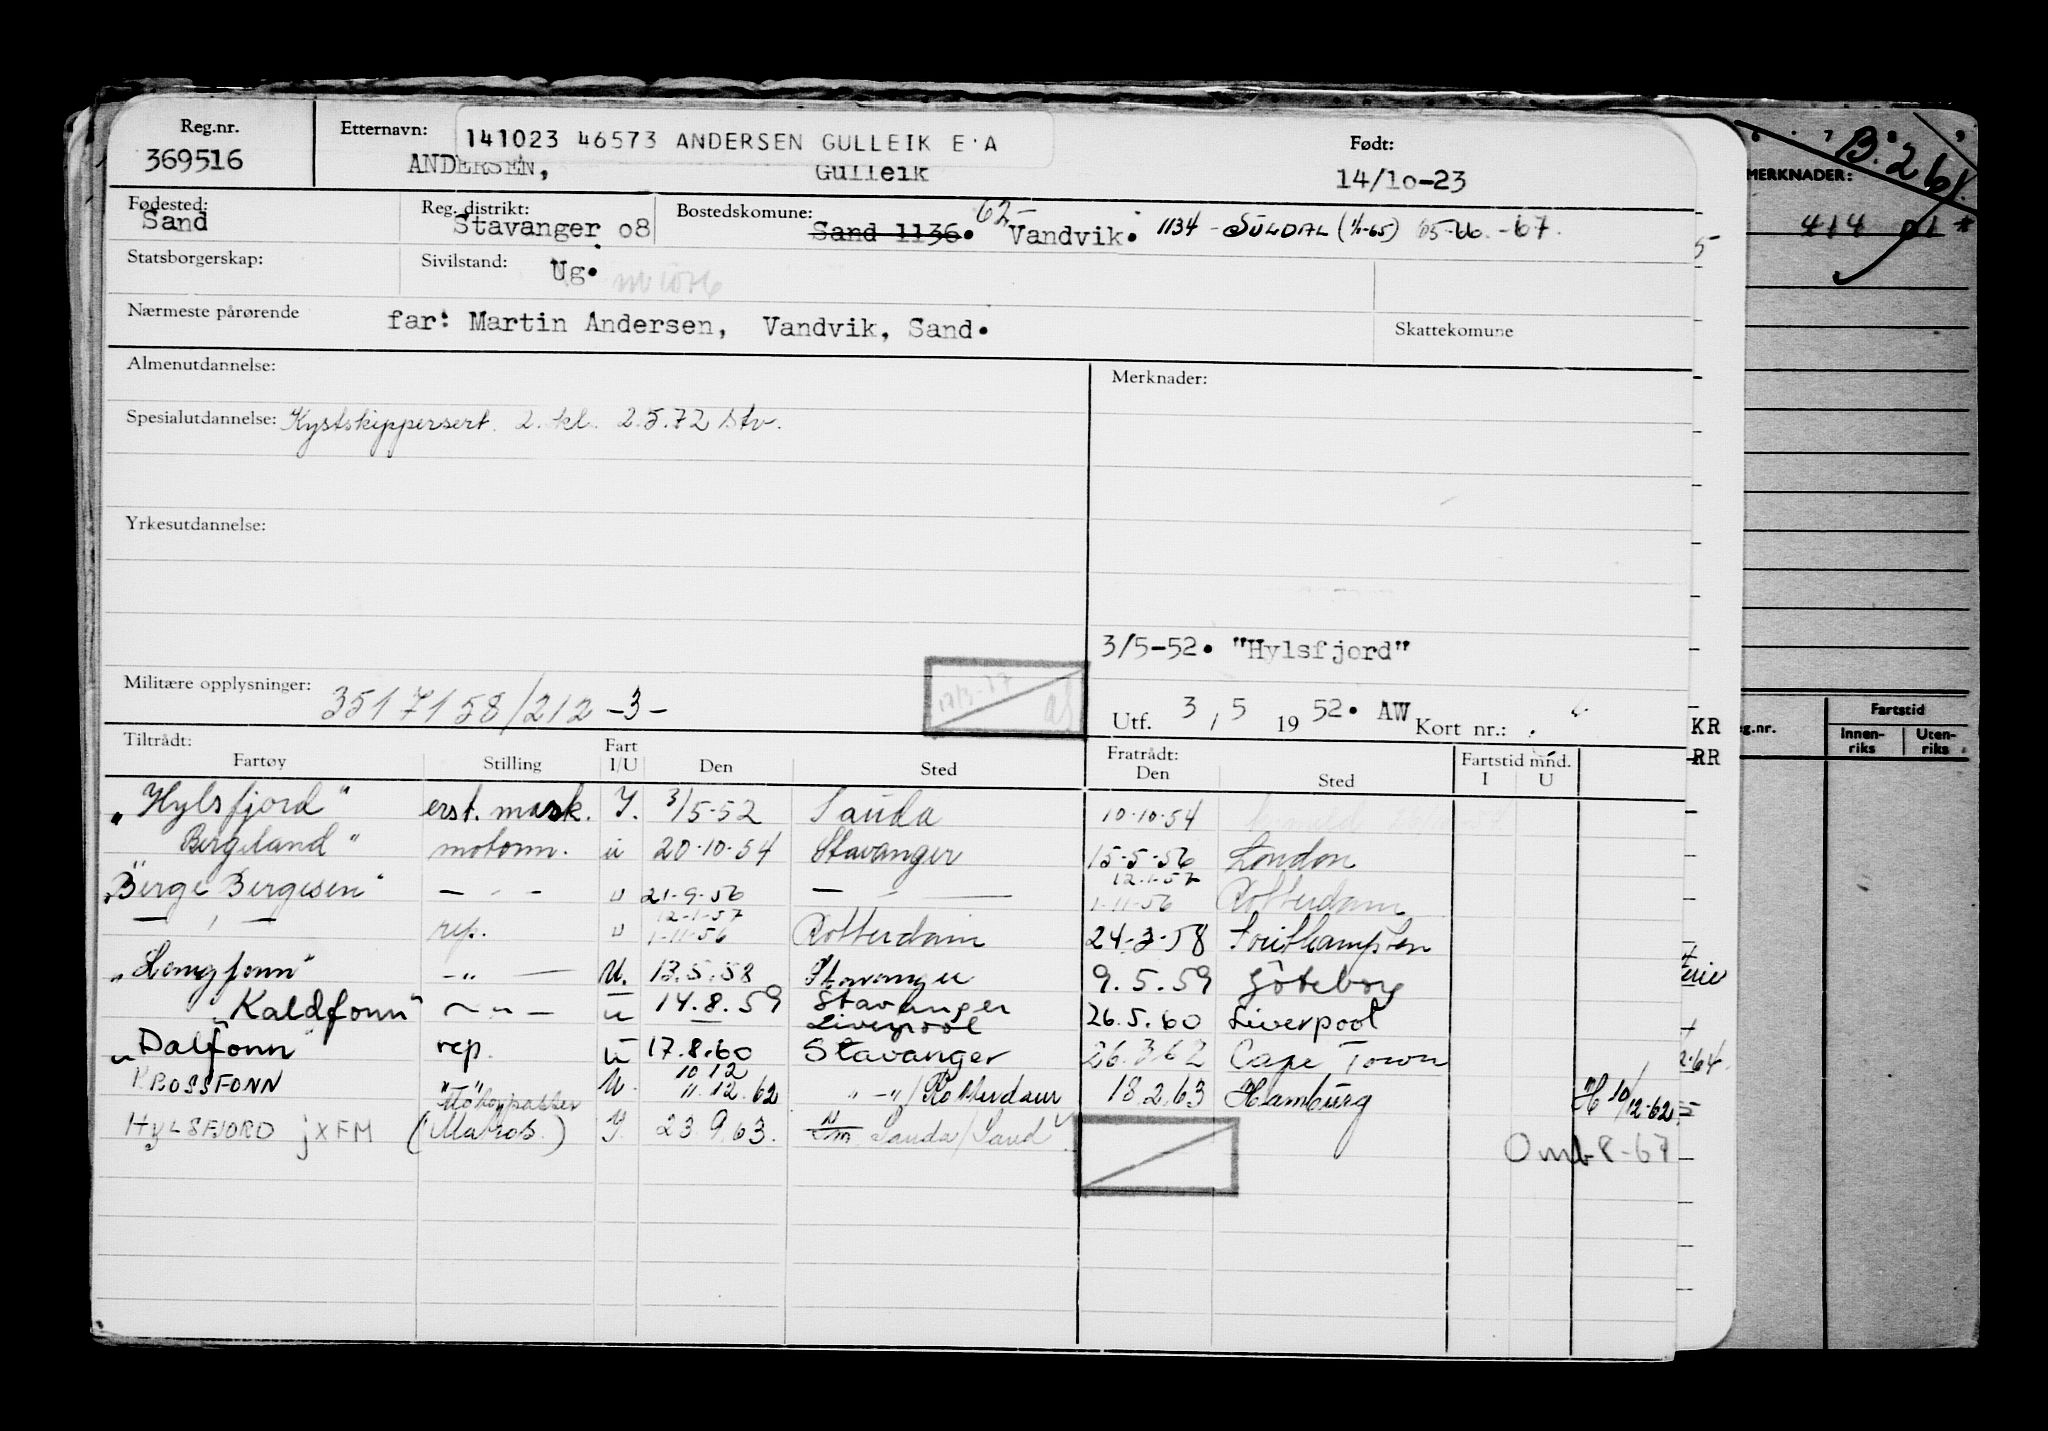 Reg.nr. Etternavn: 141023 46573 ANDERSEN GULLEIK E·A Født:
369516 ANDERSEN, Gulleik 14/10-23
Fødested: Reg. distrikt: Bostedskomune: 62-
Sand Stavanger 08 Sand 1136. Vandvik. 1134 - SULDAL (1/1-65) 65-66-67.
Statsborgerskap: Sivilstand: Ug.
Nærmeste pårørende far: Martin Andersen, Vandvik, Sand. Skattekomune
Almenutdannelse: Merknader:
Spesialutdannelse: Kystskippersert. 2. kl. 2.5.72 Stv.
Yrkesutdannelse:
3/5-52. "Hylsfjord"
Militære opplysninger: 3517158/212 -3-
Utf. 3, 5 1952. AW Kort nr.:
Tiltrådt: Fratrådt:
Fartøy Stilling Fart I/U Den Sted Den Sted Fartstid mnd. I U
"Hylsfjord" erst. mask. I. 3/5-52 Sauda 10-10-54
Bergeland" motorm. u 20-10-54 Stavanger 15-5-56 London
"Berge Bergesen" — " — u 21-9-56 — " — 12-1-57 1-11-56 Rotterdam
— " — rep. u 12-1-57 1-11-56 Rotterdam 24-3-58 Southampton
"Langfonn" — " — U. 13.5.58 Stavanger 9.5.59 Göteborg
"Kaldfonn" — " — u 14.8.59 Stavanger Liverpool 26.5.60 Liverpool
"Dalfonn" rep. u 17.8.60 Stavanger 26.3.62 Cape Town
KROSSFONN U. 10 12 11.12.62 " - "/Rotterdam 18.2.63 Hamburg H 10/12-62
HYLSFJORD jXFM (Matros.) I. 23.9.63. Sauda/Sand
Omb 8-67
B.261
MERKNADER:
414 01 *
KR
RR
g.nr. Fartstid
Innen-riks Uten-riks